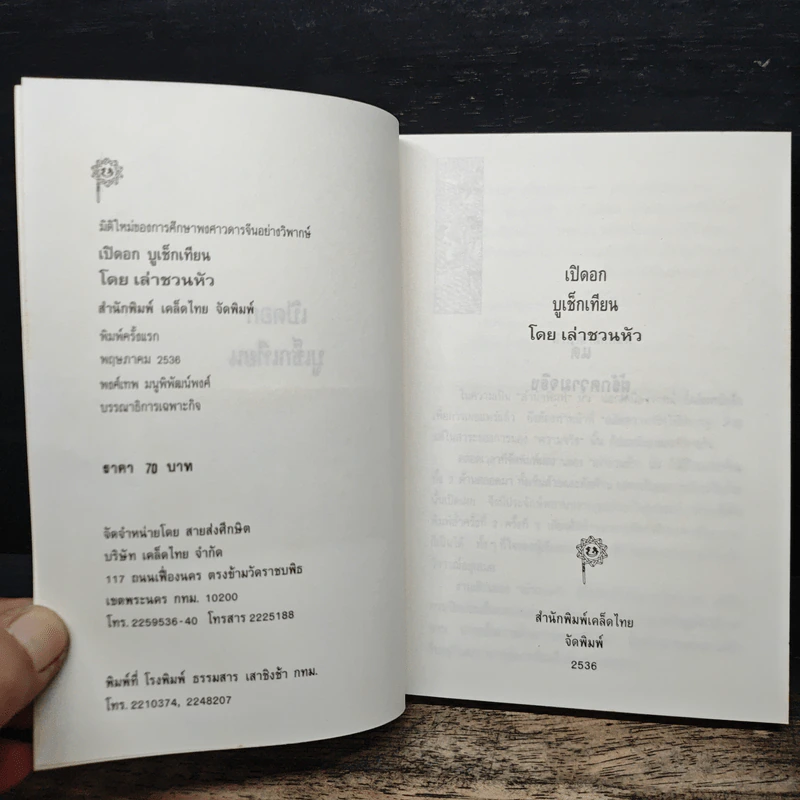 มิติใหม่ของการศึกษาพงศาวดารจีนอย่างวิพากษ์
เปิดอก บูเช็กเทียน
โดย เล่าชวนหัว
สำนักพิมพ์ เคล็ดไทย จัดพิมพ์
พิมพ์ครั้งแรก
พฤษภาคม 2536
พงศ์เทพ มนูพิพัฒน์พงศ์
บรรณาธิการเฉพาะกิจ
ราคา 70 บาท
จัดจำหน่ายโดย สายส่งศึกษิต
บริษัท เคล็ดไทย จำกัด
117 ถนนเฟื่องนคร ตรงข้ามวัดราชบพิธ
เขตพระนคร กทม. 10200
โทร. 2259536-40 โทรสาร 2225188
พิมพ์ที่ โรงพิมพ์ ธรรมสาร เสาชิงช้า กทม.
โทร. 2210374, 2248207
เปิดอก
บูเช็กเทียน
โดย เล่าชวนหัว
สำนักพิมพ์เคล็ดไทย
จัดพิมพ์
2536